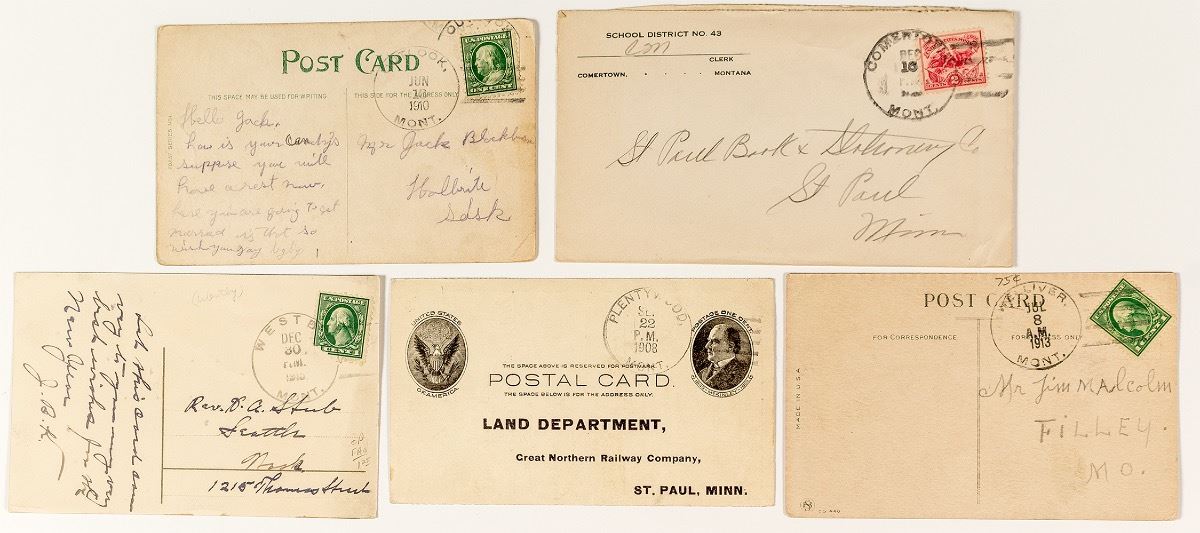 OUTLOOK,
JUN
1910
MONT.
U.S. POSTAGE
ONE CENT
POST CARD
THIS SPACE MAY BE USED FOR WRITING.
THIS SIDE FOR THE ADDRESS ONLY.
Hello Jack.
how is your
suppose you will
have a rest now.
hear you are going to get
married is that so
Mr Jack Blackburn
Halbrite
Sask
SCHOOL DISTRICT NO. 43
CLERK
COMERTOWN, . . . . MONTANA
COMERTOWN
DEC
16
MONT.
St Paul Book & Stationery Co
St Paul
Minn
U.S. POSTAGE
WEST
DEC
30
P.M.
MONT.
Let this card con
vey to you my very
best wishes for the
New Year
J. B. K.
Rev. D. A. Strub
Seattle
Wash
1215 Thomas Street
UNITED STATES
OF AMERICA
PLENTYWOOD,
SE.
22
P.M.
1908
MONT.
POSTAGE ONE CENT
McKINLEY
THE SPACE ABOVE IS RESERVED FOR POSTMARK.
POSTAL CARD.
THE SPACE BELOW IS FOR THE ADDRESS ONLY.
LAND DEPARTMENT,
Great Northern Railway Company,
ST. PAUL, MINN.
75¢
POST CARD
JUL
8
A.M.
1913
MONT.
FOR CORRESPONDENCE
FOR ADDRESS ONLY
MADE IN U.S.A.
Mr Jim Malcolm
FILLEY.
MO.